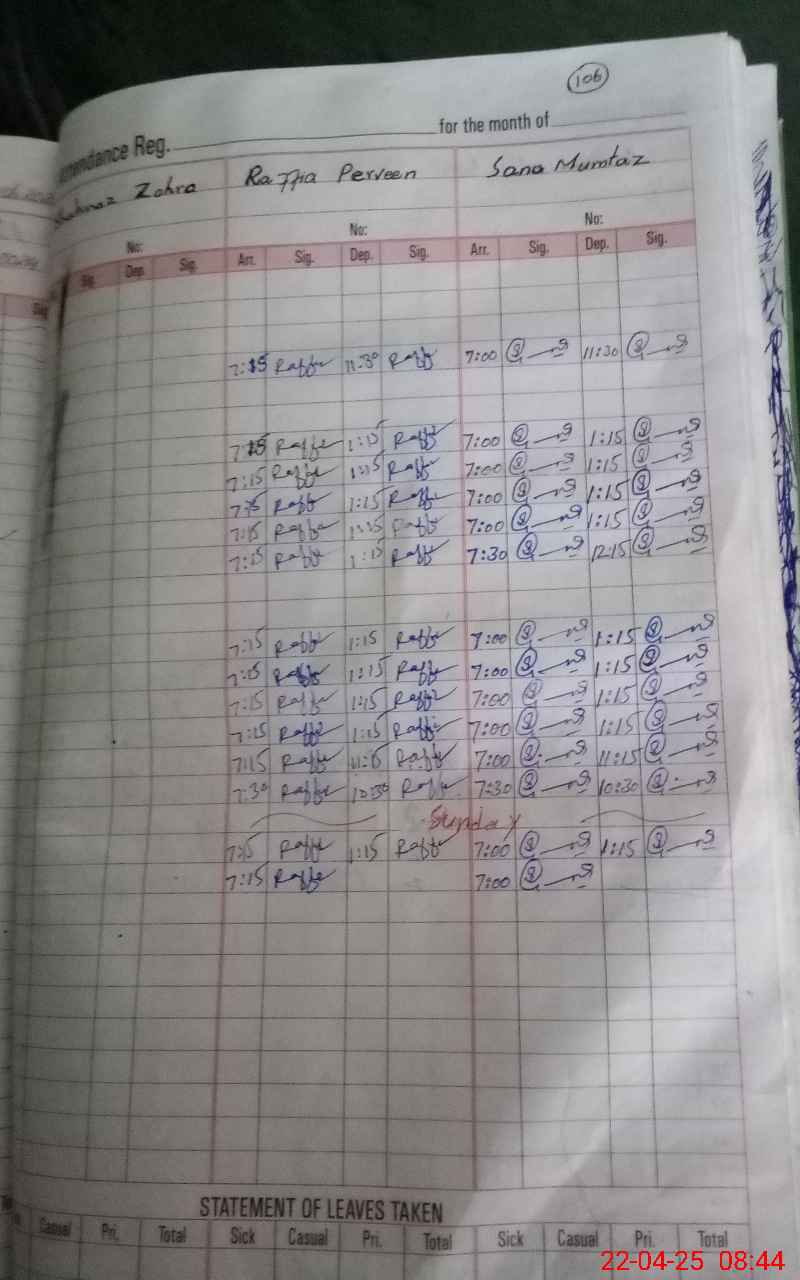 106
Attendance Reg. for the month of
Zahra Raffia Perveen Sana Mumtaz
No: No: No:
Sig. Dep. Sig. Arr. Sig. Dep. Sig. Arr. Sig. Dep. Sig.
7:15 Raffe 11:30 Raffe 7:00 11:30
7:15 Raffe 1:15 Raffe 7:00 1:15
7:15 Raffe 1:15 Raffe 7:00 1:15
7:15 Raffe 1:15 Raffe 7:00 1:15
7:15 Raffe 1:15 Raffe 7:00 1:15
7:15 Raffe 1:15 Raffe 7:30 12:15
7:15 Raffe 1:15 Raffe 7:00 1:15
7:15 Raffe 1:15 Raffe 7:00 1:15
7:15 Raffe 1:15 Raffe 7:00 1:15
7:15 Raffe 1:15 Raffe 7:00 1:15
7:15 Raffe 11:15 Raffe 7:00 11:15
7:30 Raffe 10:30 Raffe 7:30 10:30
Sunday
7:15 Raffe 1:15 Raffe 7:00 1:15
7:15 Raffe 7:00
STATEMENT OF LEAVES TAKEN
Casual Pri. Total Sick Casual Pri. Total Sick Casual Pri. Total
22-04-25 08:44